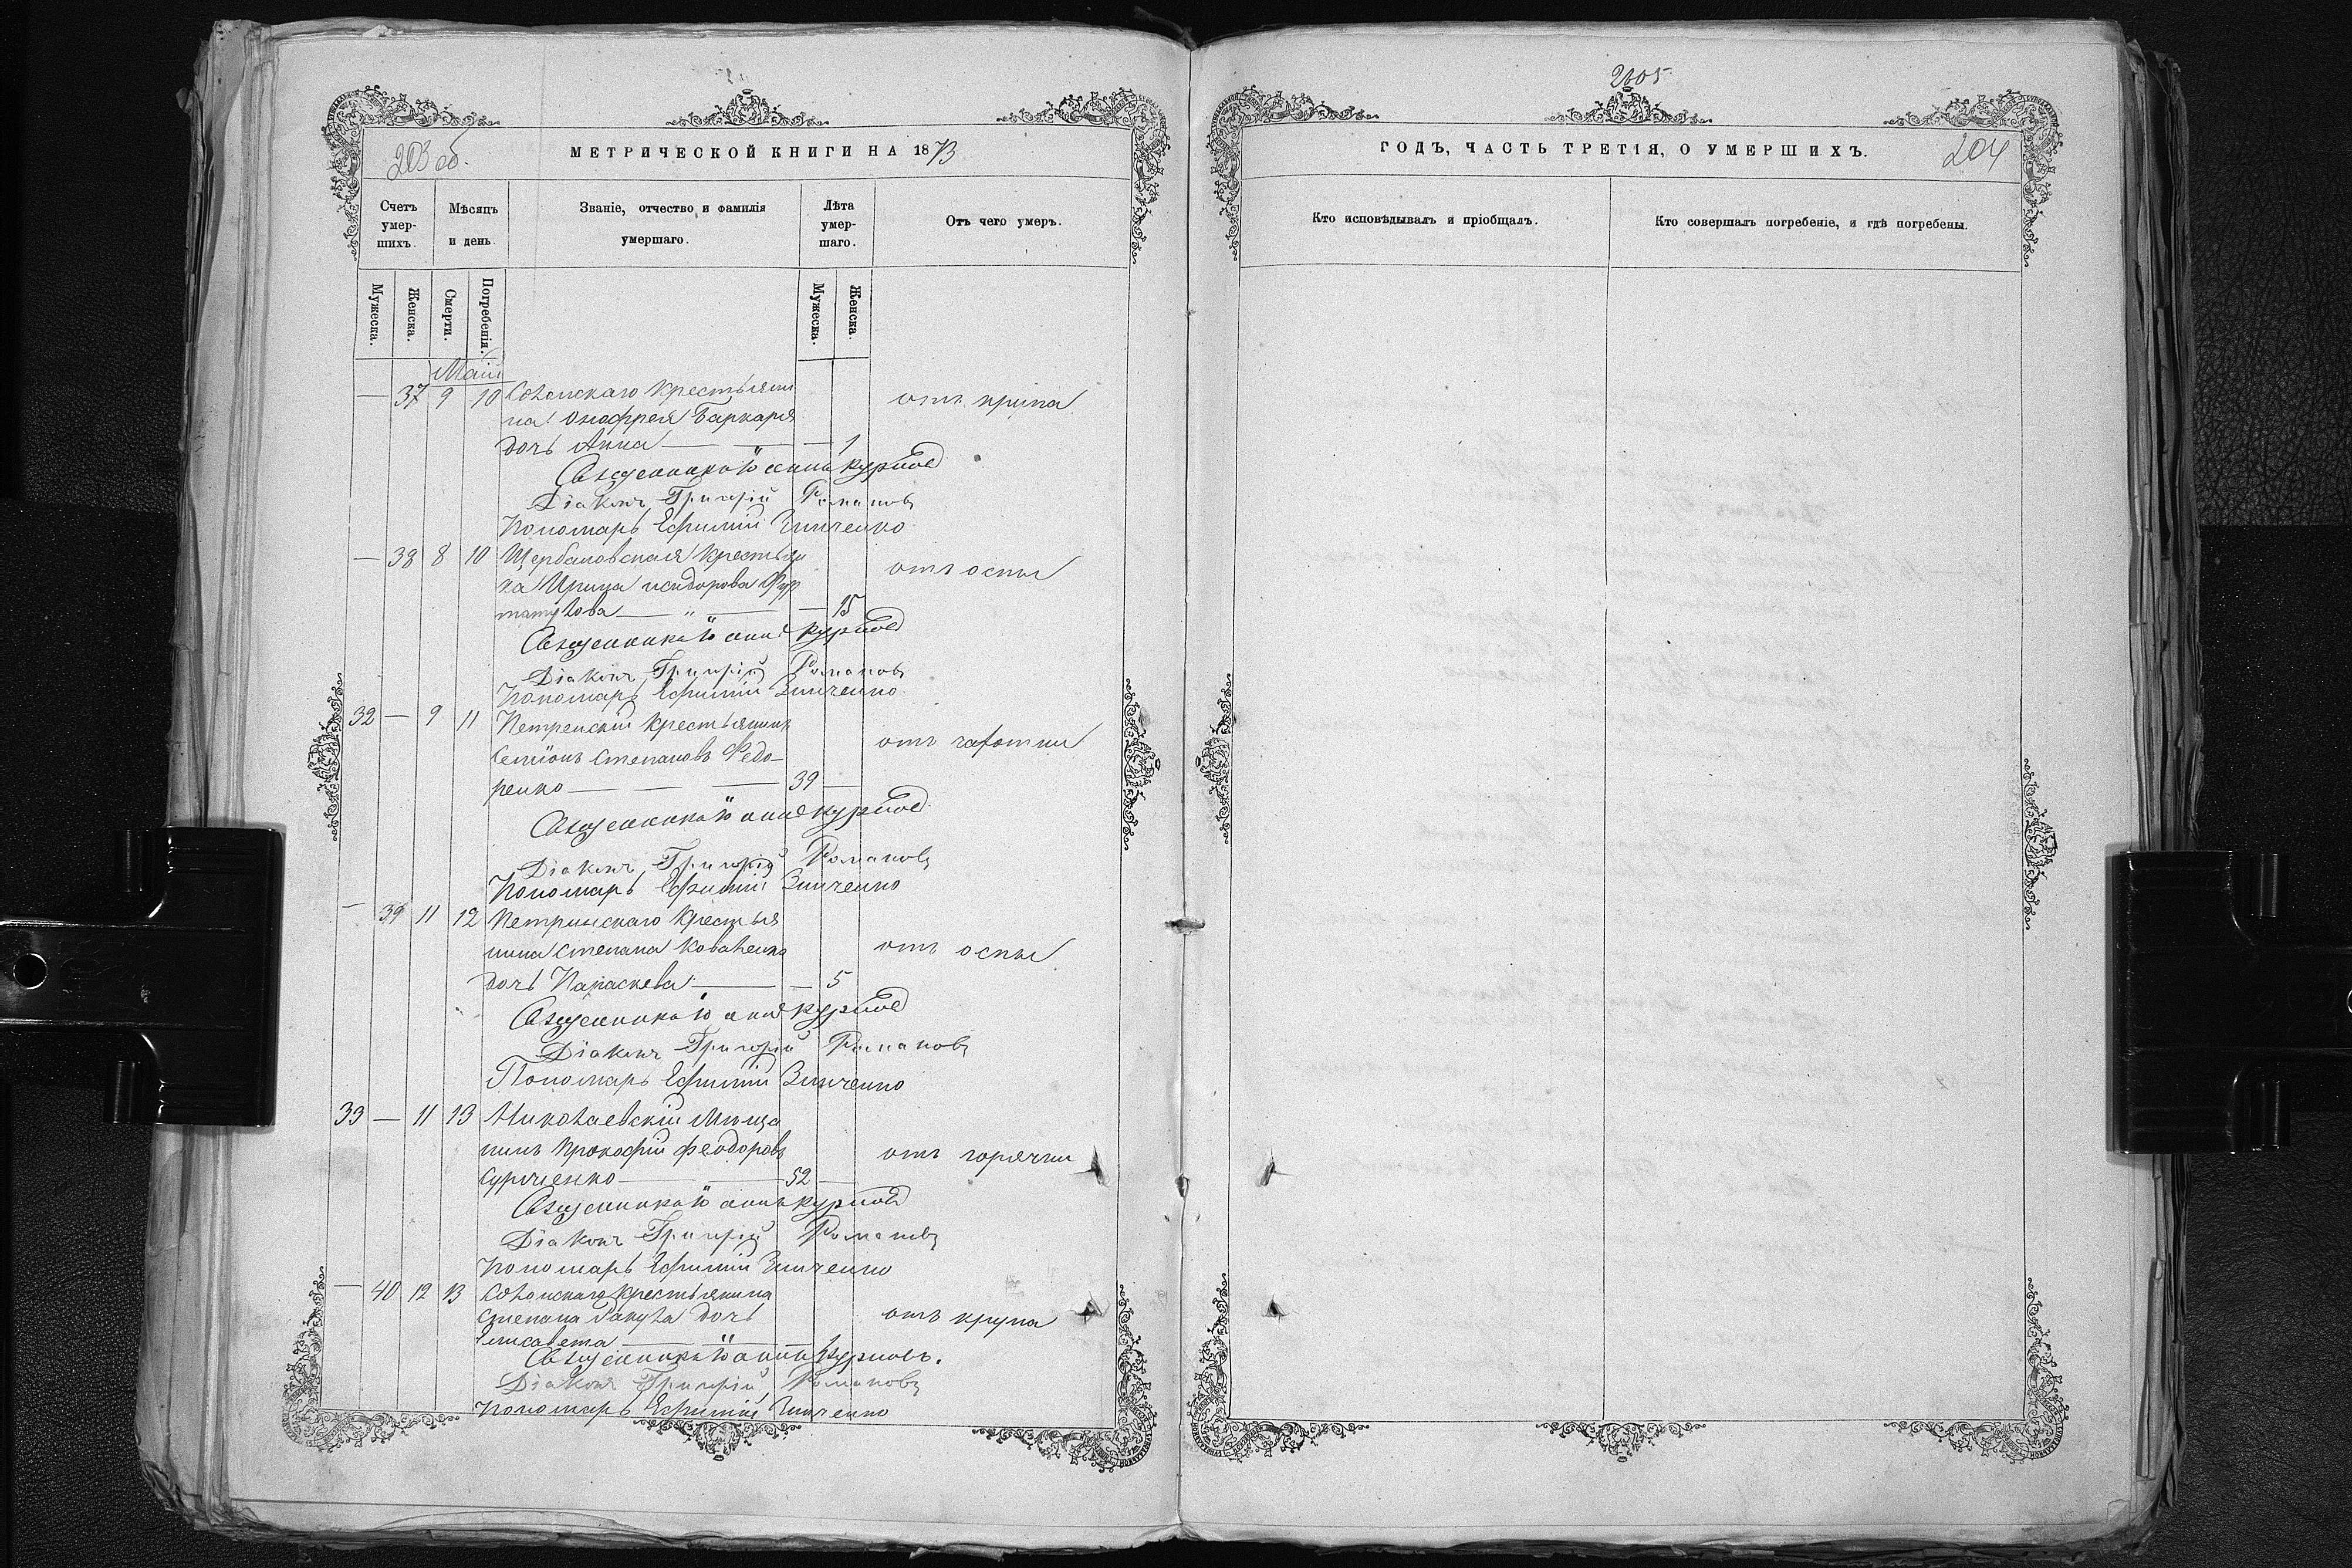 203 об.
МЕТРИЧЕСКОЙ КНИГИ НА 1873
Счетъ умер-шихъ.
Мѣсяцъ и день.
Званіе, отчество и фамилія умершаго.
Лѣта умер-шаго.
Отъ чего умеръ.
Мужеска.
Женска.
Смерти.
Погребенія.
Мужеска.
Женска.
Маій
— 37 9 10 крестьяни отъ крупа
на Онофрея
дочь Анна — — — 1
Священникъ Іоаннъ Курилов
Діаконъ Григорій Романовъ
Пономарь Ефимій Зинченко
— 38 8 10 Щербановская крестьян отъ оспы
ка Ирина исидорова
— „ — — 15
Священникъ Іоаннъ Курилов
Діаконъ Григорій Романовъ
Пономарь Ефимій Зинченко
32 — 9 11 Петренскій крестьянинъ
Семіонъ Степановъ Федо- отъ чахотки
ренко — — — 39 —
Священникъ Іоаннъ Курилов
Діаконъ Григорій Романовъ
Пономарь Ефимій Зинченко
— 39 11 12 Петринскаго крестья
нина Степана Коваленко отъ оспы
дочь Параскева — — 5
Священникъ Іоаннъ Курилов
Діаконъ Григорій Романовъ
Пономарь Ефимій Зинченко
33 — 11 13 Николаевскій Мѣща
нинъ Прокофій феодоровъ отъ горячки
— — 52 —
Священникъ Іоаннъ Курилов
Діаконъ Григорій Романовъ
Пономарь Ефимій Зинченко
— 40 12 13 крестьянина
Степана дочь отъ крупа
Елисавета — „ — — 1
Священникъ Іоаннъ Куриловъ.
Діаконъ Григорій Романовъ
Пономарь Ефимій Зинченко
2405
ГОДЪ, ЧАСТЬ ТРЕТІЯ, О УМЕРШИХЪ.
204
Кто исповѣдывалъ и пріобщалъ.
Кто совершалъ погребеніе, и гдѣ погребены.